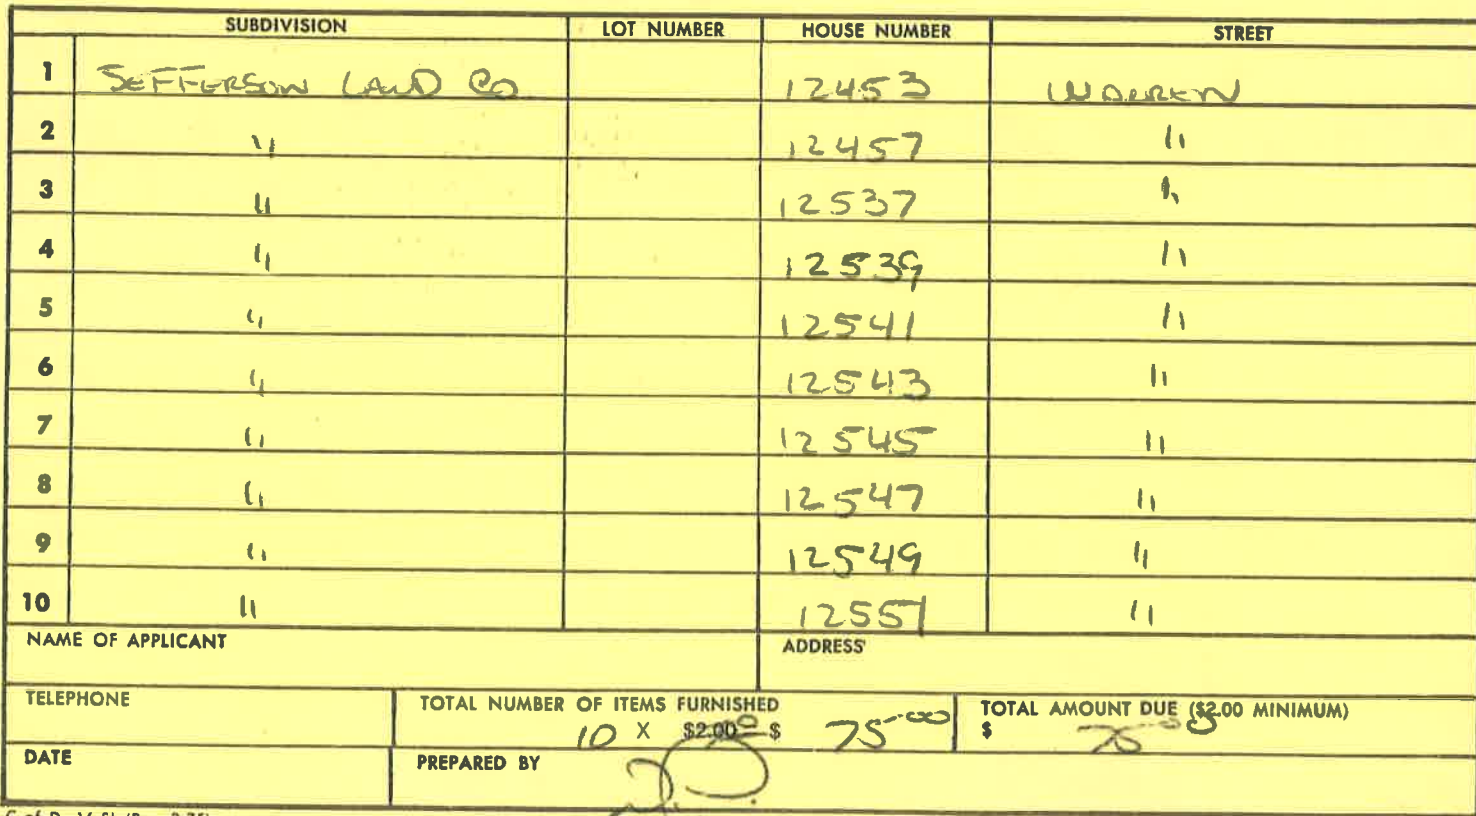 SUBDIVISION LOT NUMBER HOUSE NUMBER STREET
1 JEFFERSON LAND CO. 12453 WARREN
2 " 12457 "
3 " 12537 "
4 " 12539 "
5 " 12541 "
6 " 12543 "
7 " 12545 "
8 " 12547 "
9 " 12549 "
10 " 12551 "
NAME OF APPLICANT ADDRESS
TELEPHONE TOTAL NUMBER OF ITEMS FURNISHED TOTAL AMOUNT DUE ($2.00 MINIMUM)
10 X $2.00 $ 75.00 $ 75.00
DATE PREPARED BY